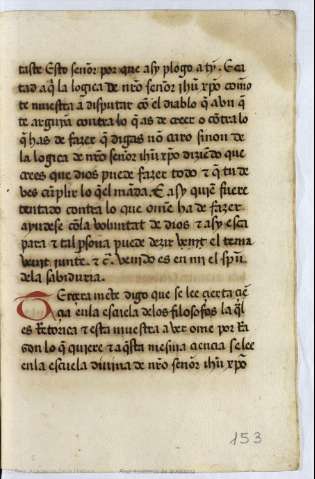 taste Esto señor por que asy plogo a ty. Ca
tad aq̃ la logica de nr̃o señor ihũ xp̃o como
te muestra a disputar cõ el diablo q̃ avn q̃
te arguya contra lo q̃ as de creer o cõtra lo
q̃ has de fazer q̃ digas nõ curo sinon de
la logica de nr̃o señor ihũ xp̃o diziẽdo que
crees que dios puede fazer todo τ q̃ tu de
ves cũplir lo q̃l mãda. E asy quiẽ fuere
tentado contra lo que om̃e ha de fazer
ayudese cõla voluntat de dios τ asy esta
para τ tal p̃sona puede dezir
el tema
venit
τ c̃. venido es en mi el sp̃u
dela sabiduria.
Tercera mẽte digo que se lee çierta çiẽ
çia enla escuela delos filosofos la q̃l
es Retorica τ esta muestra a ver ome por Ra
zon lo q̃ quiere τ aq̃sta mesma ciencia se lee
enla escuela diuina de nr̃o señor ihũ xp̃o
153